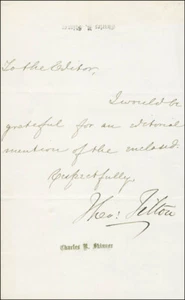 To the Editor,
I would be
grateful for an editorial
mention of the enclosed.
Respectfully
Theo: Tilton
Charles R. Skinner